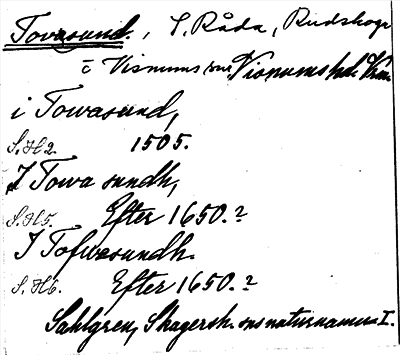 Tovasund., S. Råda, Rudskoga
i Towasund,
S. H2. 1505.
I Towa sundh,
S. H5. Efter 1650.?
I Tofwesundh.
S. H6. Efter 1650.?
Sahlgren, Skagersh. sns naturnamn I.